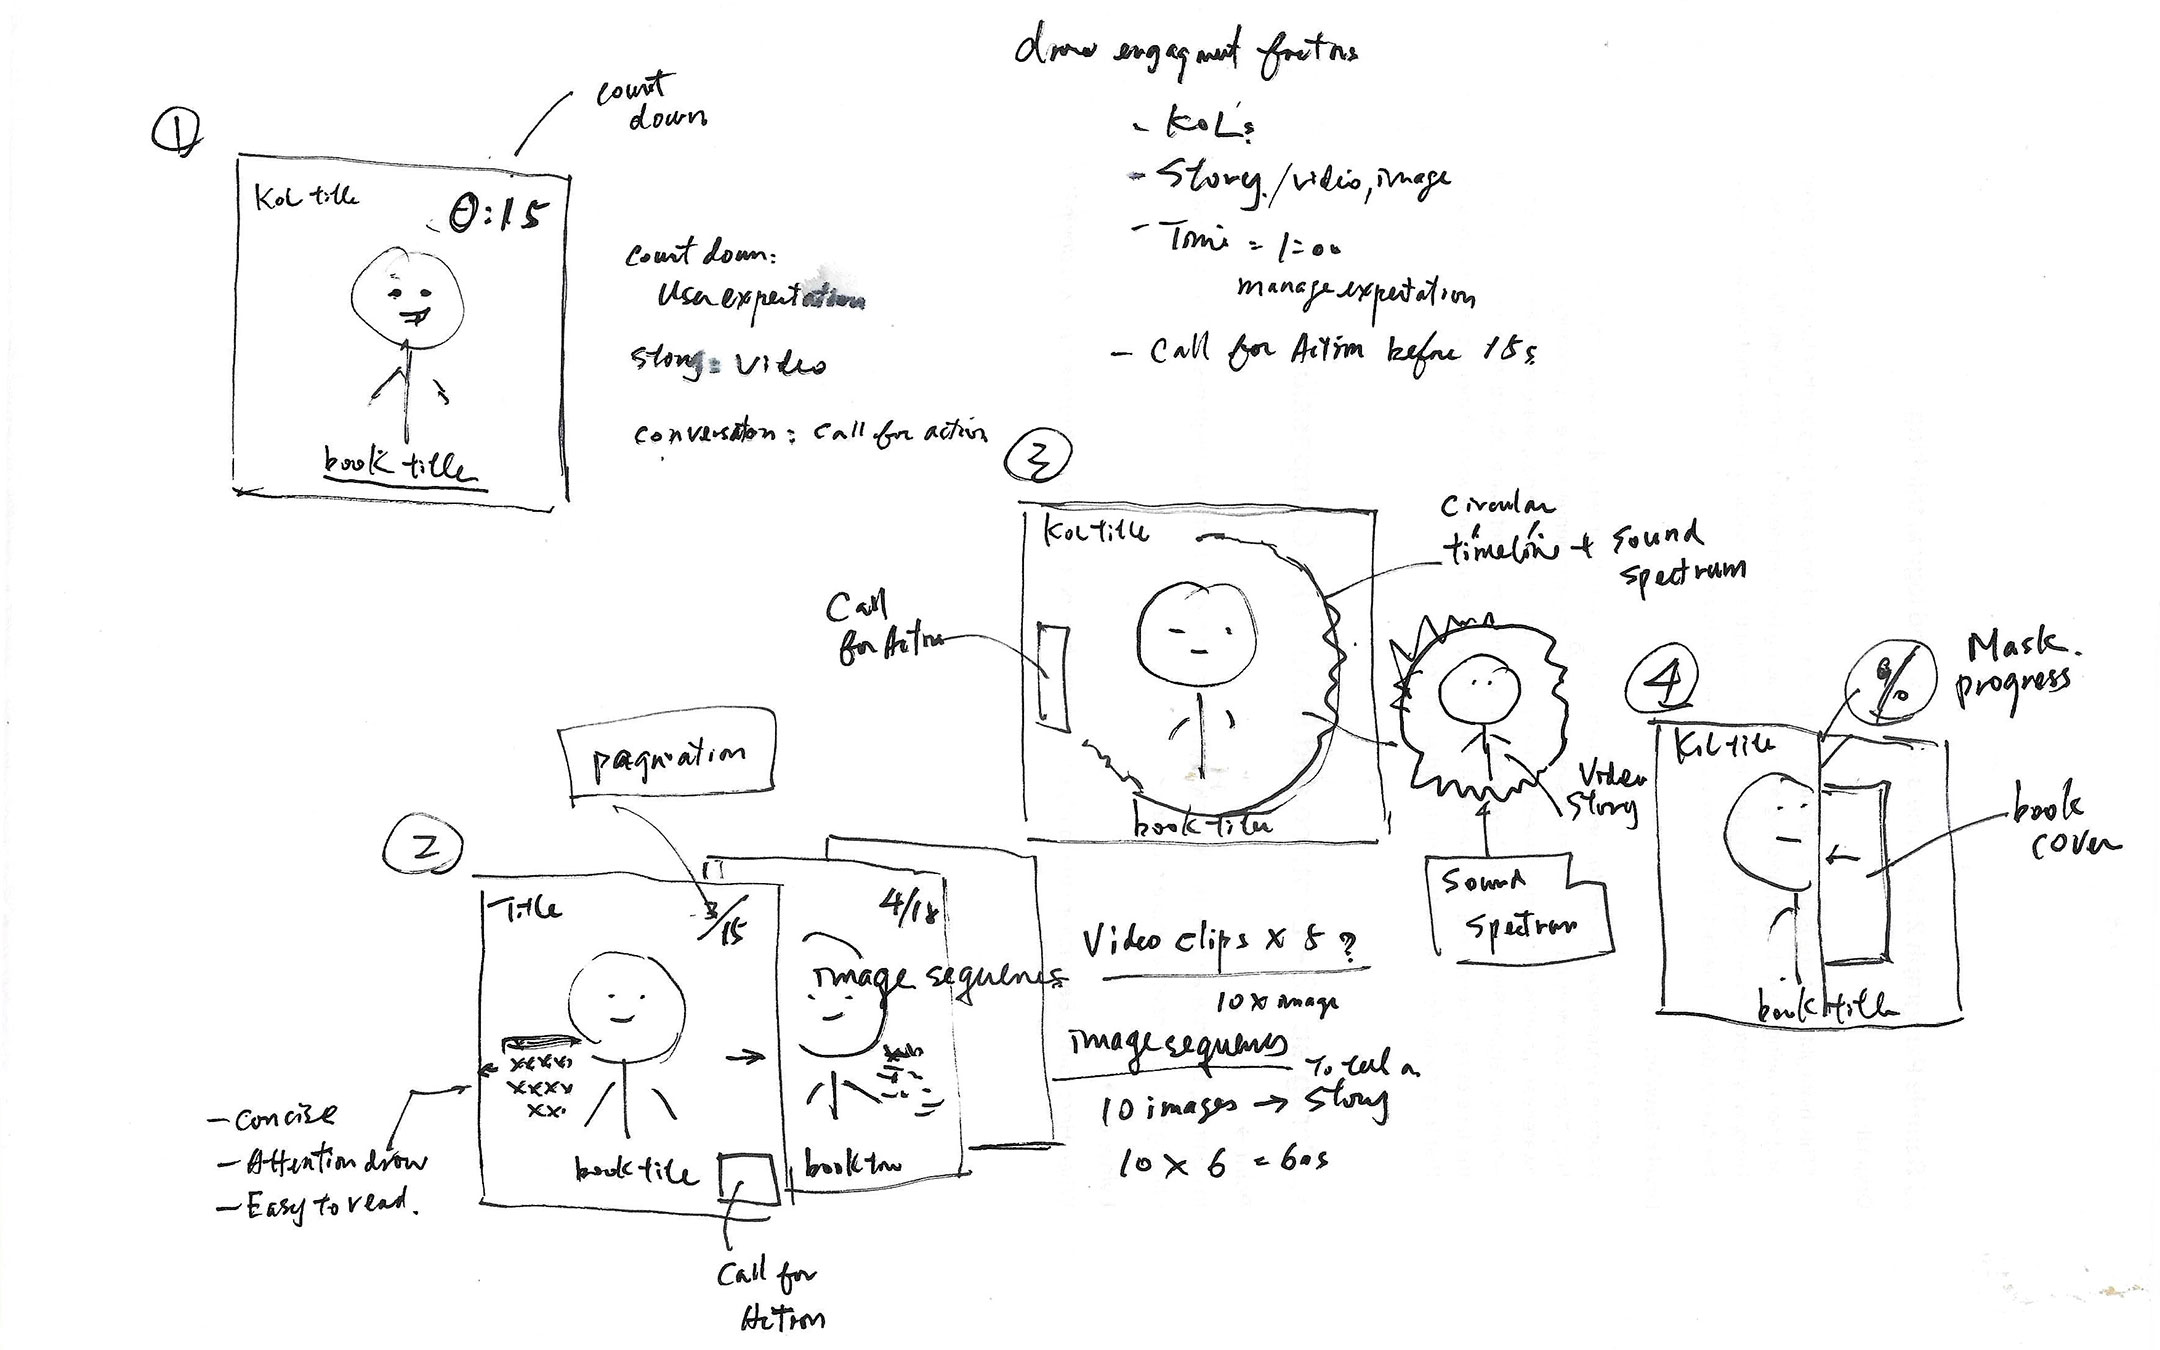 draw engagment factors
- KOL's
- Story / video, image
- Time = 1:00
manage expectation
- Call for Action before 15s
1
count
down
KOL title
0:15
book title
count down:
User expectation
story: video
conversation: call for action
3
KOL title
book title
Circular
timeline + sound
spectrum
Call
for Action
Video
Story
Sound
Spectrum
4
KOL title
%
Mask
progress
book
cover
book title
2
pagination
Title
3/15
xxxx
xxxx
xx
book title
Call for
Action
4/18
image sequences
- Concise
- Attention draw
- Easy to read.
Video clips x 5 ?
10 x image
image sequences
To tell a
10 images → Story
10 x 6 = 60s